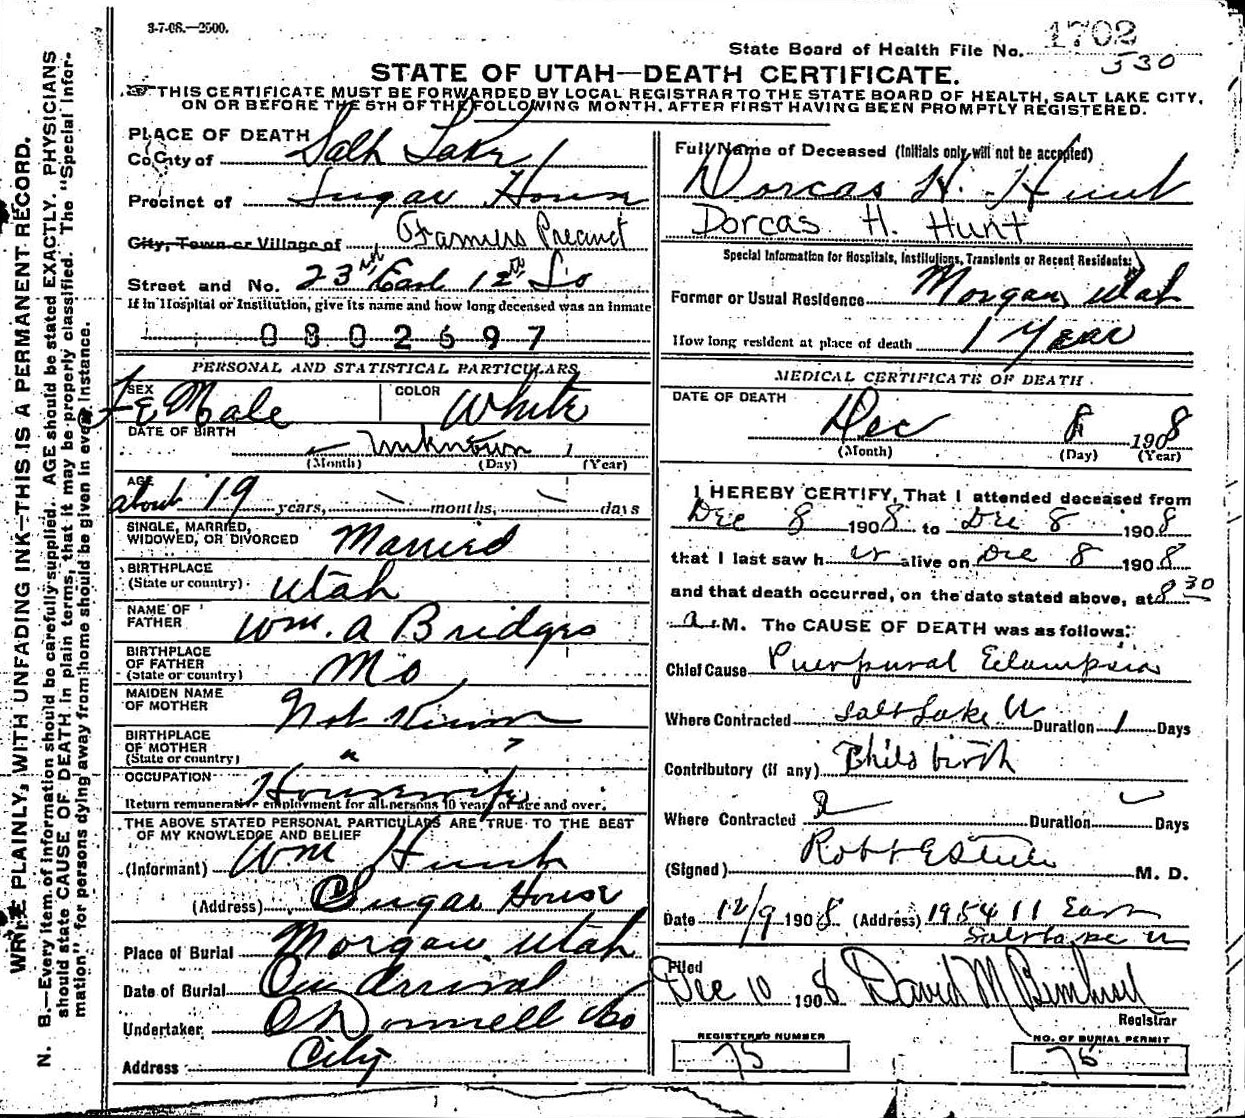 3-7-08.—2500.
State Board of Health File No. 1702
530
STATE OF UTAH—DEATH CERTIFICATE.
THIS CERTIFICATE MUST BE FORWARDED BY LOCAL REGISTRAR TO THE STATE BOARD OF HEALTH, SALT LAKE CITY,
ON OR BEFORE THE 5TH OF THE FOLLOWING MONTH, AFTER FIRST HAVING BEEN PROMPTLY REGISTERED.
WRITE PLAINLY, WITH UNFADING INK—THIS IS A PERMANENT RECORD.
N. B.—Every item of information should be carefully supplied. AGE should be stated EXACTLY. PHYSICIANS
should state CAUSE OF DEATH in plain terms, that it may be properly classified. The "Special Infor-
mation" for persons dying away from home should be given in every instance.
PLACE OF DEATH
County of Salt Lake
Precinct of Sugar House
City, Town or Village of Farmers Precinct
Street and No. 23rd East 12th So
If in Hospital or Institution, give its name and how long deceased was an inmate
0802697
PERSONAL AND STATISTICAL PARTICULARS
SEX FeMale COLOR White
DATE OF BIRTH Unknown
(Month) (Day) (Year)
AGE about 19 years, months, days
SINGLE, MARRIED,
WIDOWED, OR DIVORCED Married
BIRTHPLACE
(State or country) Utah
NAME OF
FATHER Wm. A Bridges
BIRTHPLACE
OF FATHER
(State or country) Mo
MAIDEN NAME
OF MOTHER Not Known
BIRTHPLACE
OF MOTHER
(State or country) "
OCCUPATION Housewife
Return remunerative employment for all persons 10 years of age and over.
THE ABOVE STATED PERSONAL PARTICULARS ARE TRUE TO THE BEST
OF MY KNOWLEDGE AND BELIEF
(Informant) Wm Hunt
(Address) Sugar House
Place of Burial Morgan Utah
Date of Burial On Arrival
Undertaker O'Donnell & Co
Address City
Full Name of Deceased (Initials only will not be accepted)
Dorcas H. Hunt
Dorcas H. Hunt
Special Information for Hospitals, Institutions, Transients or Recent Residents:
Former or Usual Residence Morgan, Utah
How long resident at place of death 1 Year
MEDICAL CERTIFICATE OF DEATH
DATE OF DEATH
Dec 8 1908
(Month) (Day) (Year)
I HEREBY CERTIFY, That I attended deceased from
Dec 8 1908 to Dec 8 1908
that I last saw her alive on Dec 8 1908
and that death occurred, on the date stated above, at 8 30
a.M. The CAUSE OF DEATH was as follows:
Chief Cause Puerpural Eclampsia
Where Contracted Salt Lake U Duration 1 Days
Contributory (if any) Childbirth
Where Contracted Duration Days
(Signed) Robt E Steele M. D.
Date 12/9 1908 (Address) 1954 11 East
Salt Lake U
Filed
Dec 10 1908 David M
Registrar
REGISTERED NUMBER
75
NO. OF BURIAL PERMIT
75